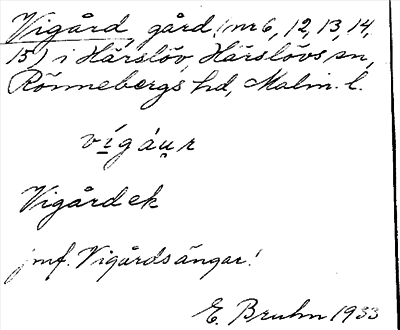 Vigård, gård (nr 6, 12, 13, 14,
15) i Härslöv, Härslövs sn,
Rönnebergs hd, Malm. l.
vígáu̯r
Vigårdek
jmf. Vigårdsängar!
E. Bruhn 1933